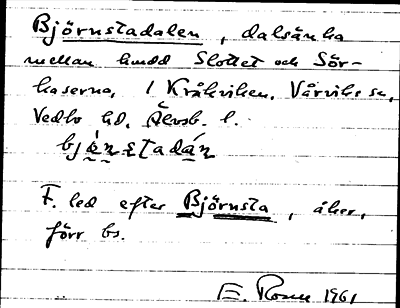 Björnstadalen, dalsänka
mellan hmdd Slottet och Sör-
kaserna, i Kråkviken, Vårviks sn,
Vedbo hd, Älvsb. l.
F. led efter Björnsta, åker,
förr bs.
E. Rosen 1961